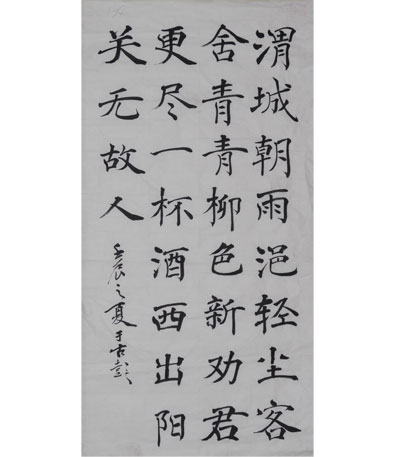 渭城朝雨浥轻尘客
舍青青柳色新劝君
更尽一杯酒西出阳
关无故人
壬辰之夏于古彭